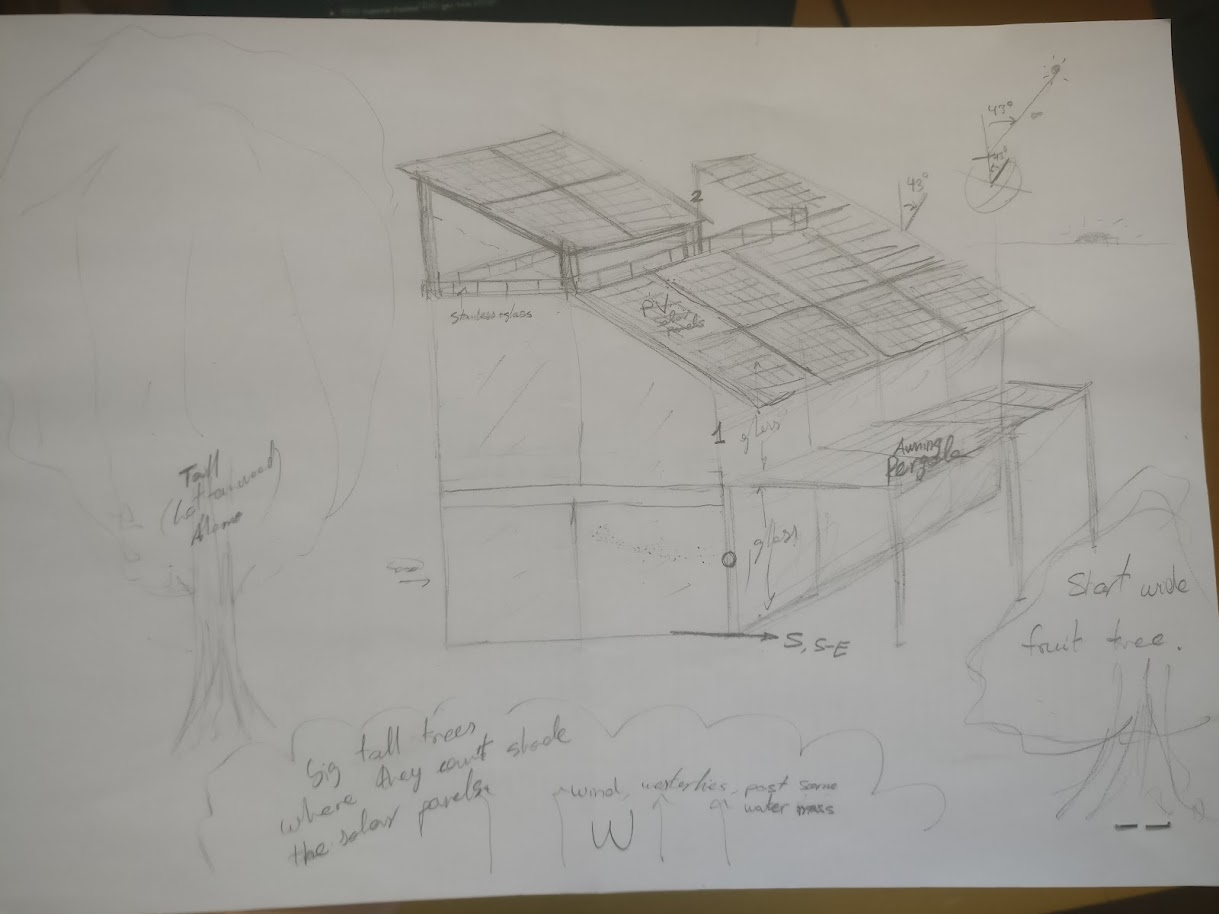 43°
43°
43°
2
Stainless+glass
PV
solar
panels
1
glass
Awning
Pergola
glass
Tall
Alamo
S, S-E
Short wide
fruit tree.
Big tall trees
where they can't shade
the solar panels.
wind, westerlies, past some
water mass
W